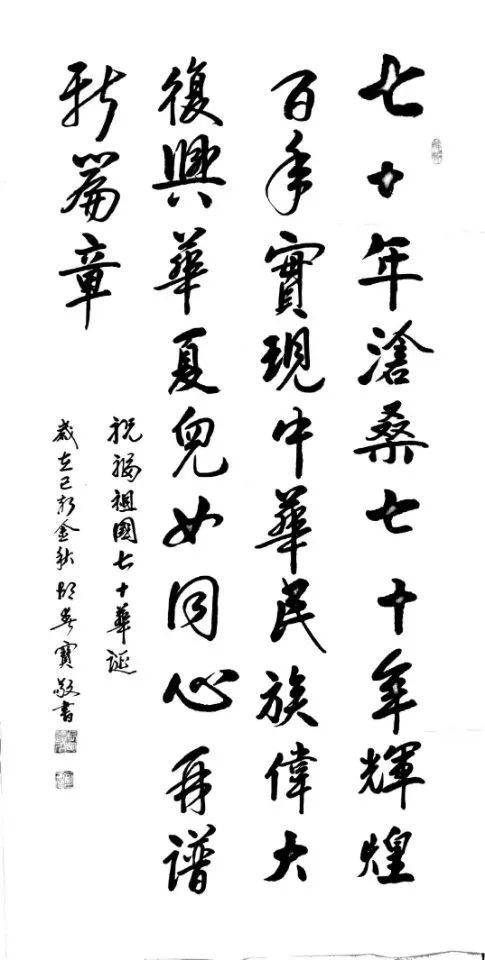 七十年滄桑七十年輝煌
百年實現中華民族偉大
復興華夏兒女同心再譜
新篇章
祝福祖國七十華誕
歲在己亥金秋胡長寶敬書